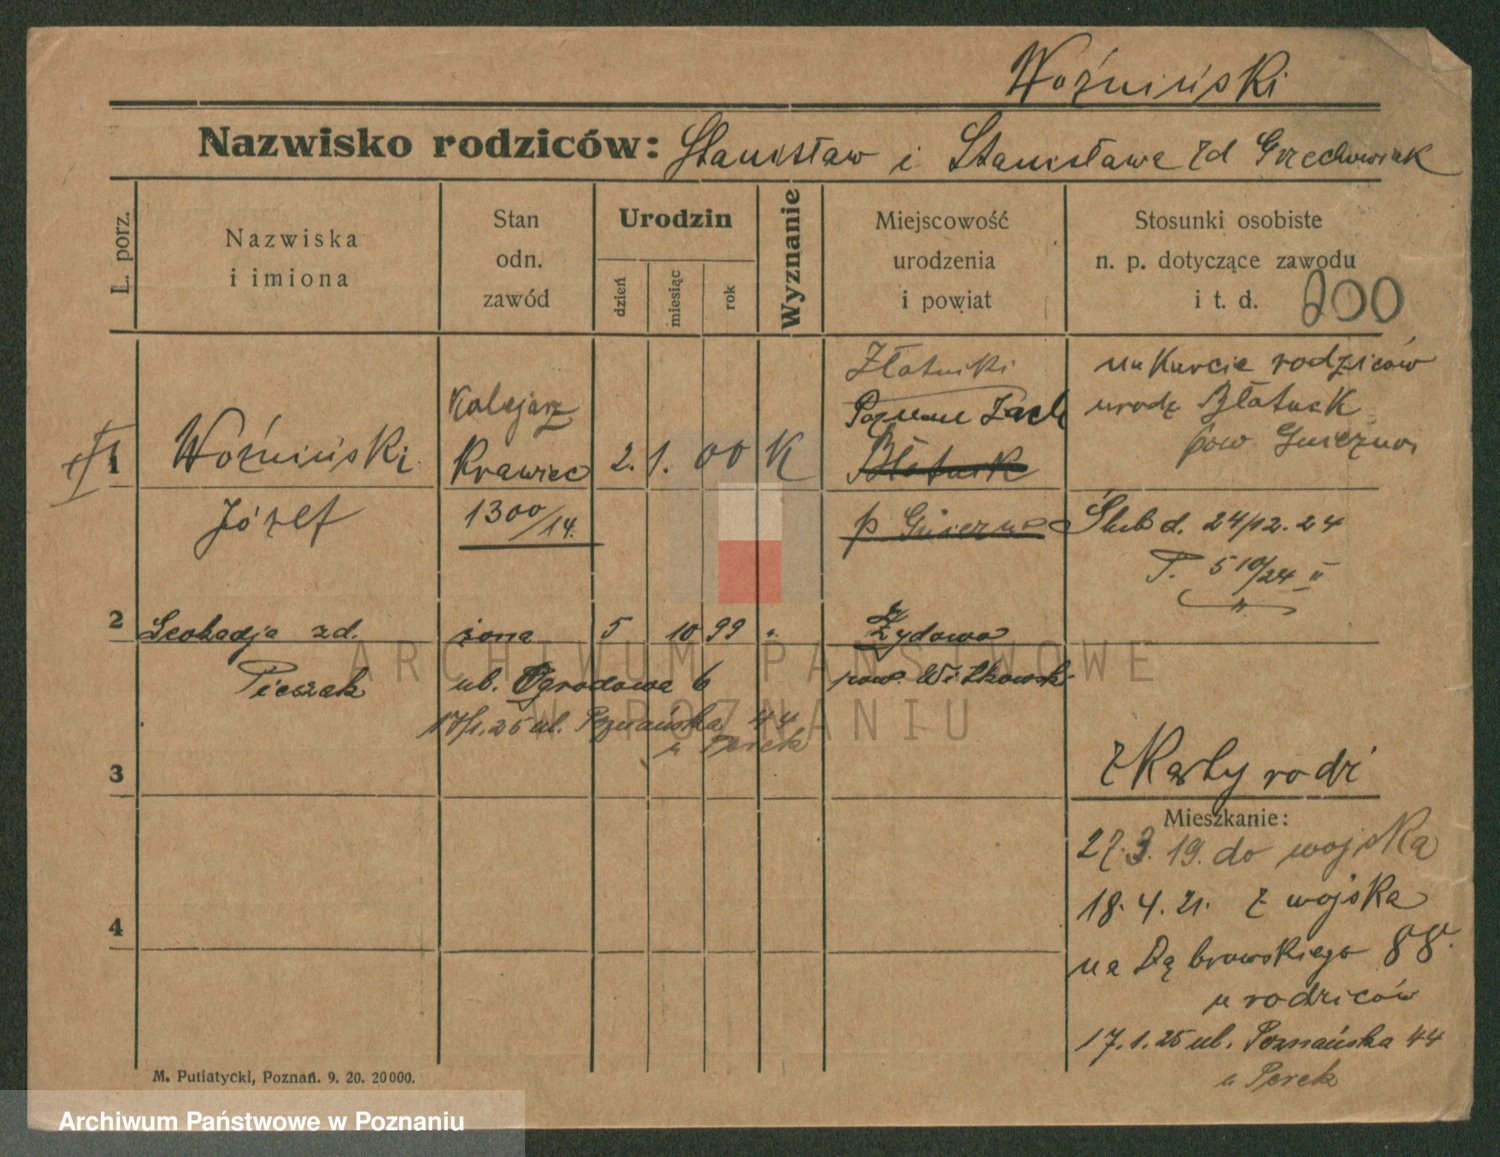 Woźniński
Nazwisko rodziców: Stanisław i Stanisława zd Grzechowiak
L. porz.
Nazwiska
i imiona
Stan
odn.
zawód
Urodzin
dzień
miesiąc
rok
Wyznanie
Miejscowość
urodzenia
i powiat
Stosunki osobiste
n. p. dotyczące zawodu
i t. d.
200
1
Woźniński
Józef
Kolejarz
Krawiec
1300/14.
2. 1. 00 K
Złotniki
Poznań Zach
p Gniezno
na Karcie rodziców
urodz
pow. Gniezno
Ślub d. 24/12. 24
T. 510/24 II
2
Leokadja zd.
Pieszak
żona
5 10 99 "
Żydowo
pow. Witkowski
ul. Ogrodowa 6
17/1.25 ul. Poznańska 44
u Perek
3
z Karty rodz
Mieszkanie:
27.3.19. do wojska
18.4.21. z wojska
na Dąbrowskiego 88.
u rodziców
17.1.25 ul. Poznańska 44
u Perek
4
M. Putiatycki, Poznań. 9. 20. 20000.
ARCHIWUM PAŃSTWOWE
W POZNANIU
Archiwum Państwowe w Poznaniu